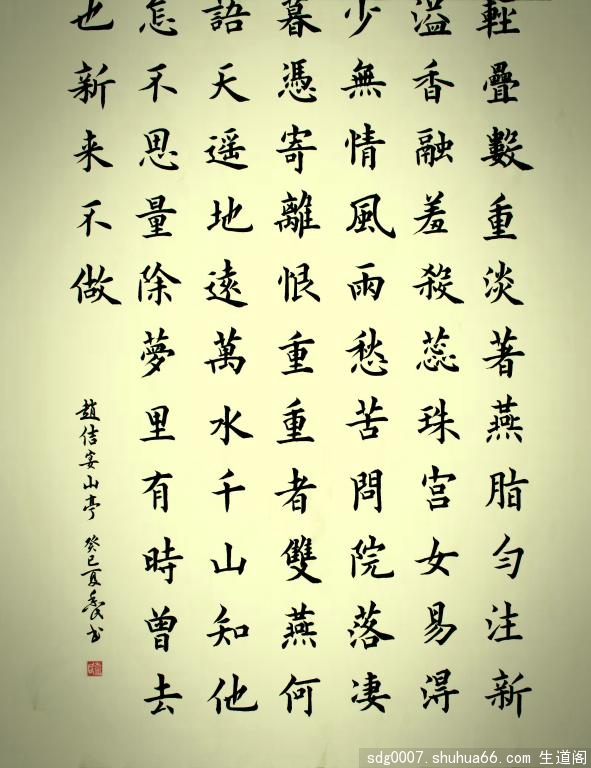 輕疊數重淡著燕脂勻注新
溢香融羞殺蕊珠宮女易淂
少無情風雨愁苦問院落凄
暮憑寄離恨重重者雙燕何
語天遥地遠萬水千山知他
怎不思量除夢里有時曾去
也新来不做
趙佶宴山亭 癸巳夏 书
sdg0007.shuhua66.com 生道阁